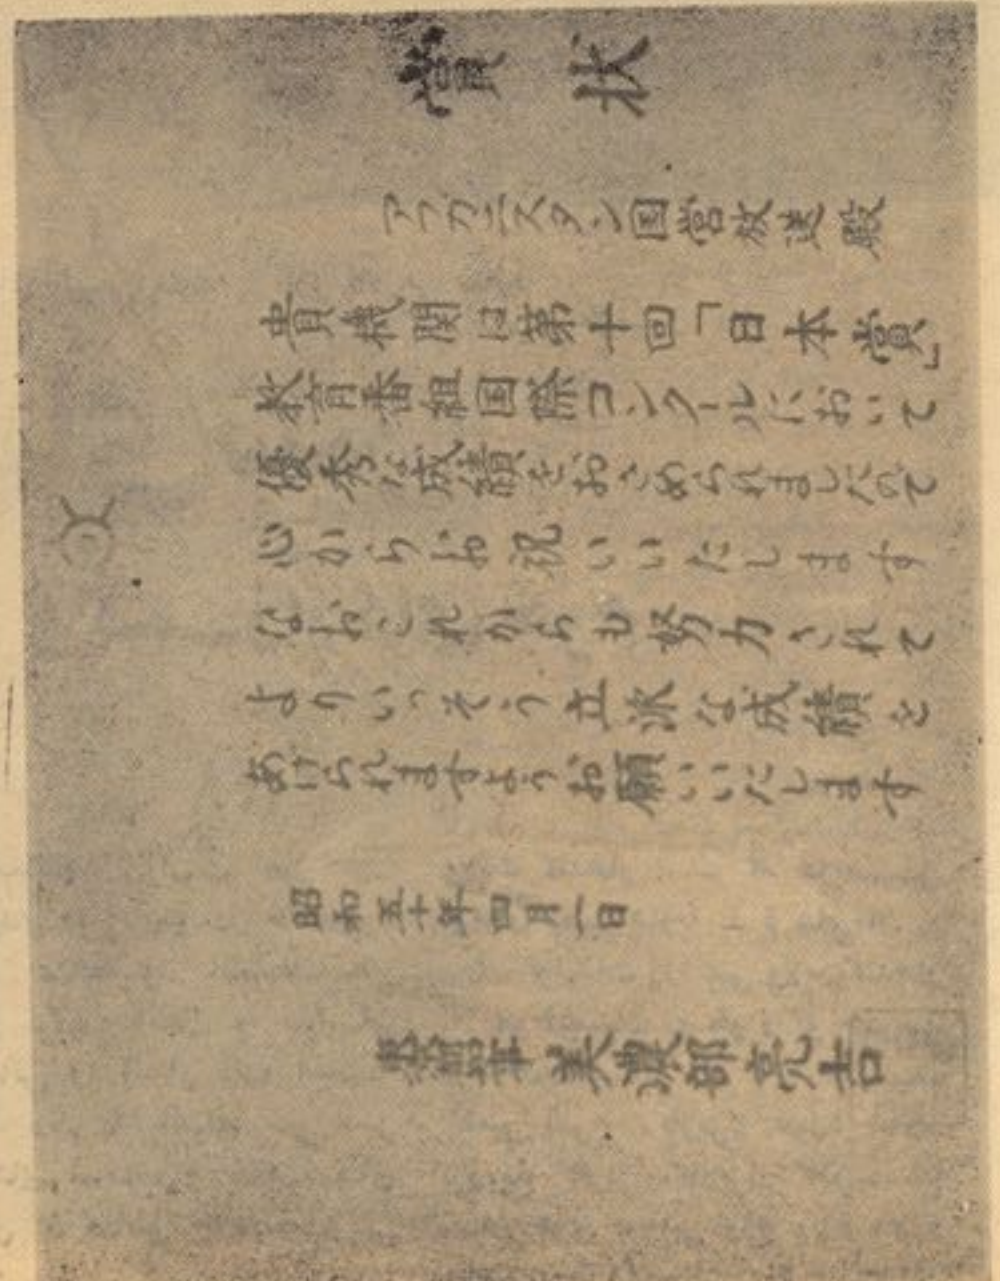 賞状
アフガニスタン国営放送殿
貴機関は第十回「日本賞」
教育番組国際コンクールにおいて
優秀な成績をおさめられましたので
心からお祝いいたします
なおこれからも努力されて
よりいっそう立派な成績を
あげられますようお願いいたします
昭和五十年四月一日
美濃部亮吉